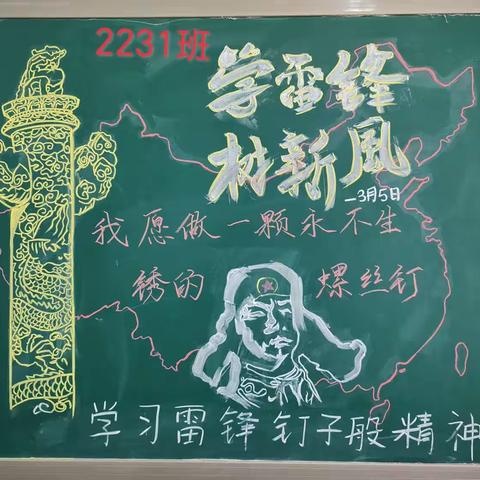 2231班
学雷锋
树新風
—3月5日
我愿做一颗永不生
锈的 螺丝钉
学习雷锋钉子般精神